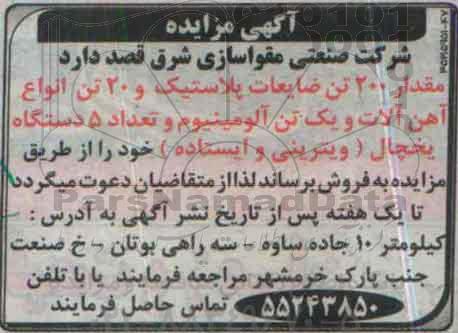 آگهی مزایده
شرکت صنعتی مقواسازی شرق قصد دارد
مقدار ۲۰۰ تن ضایعات پلاستیک و ۲۰ تن انواع
آهن آلات و یک تن آلومینیوم و تعداد ۵ دستگاه
یخچال ( ویترینی و ایستاده ) خود را از طریق
مزایده به فروش برساند لذا از متقاضیان دعوت میگردد
تا یک هفته پس از تاریخ نشر آگهی به آدرس :
کیلومتر ۱۰ جاده ساوه - سه راهی بوتان - خ صنعت
جنب پارک خرمشهر مراجعه فرمایند یا با تلفن
۵۵۲۴۳۸۵۰ تماس حاصل فرمایند
ParsNamadData